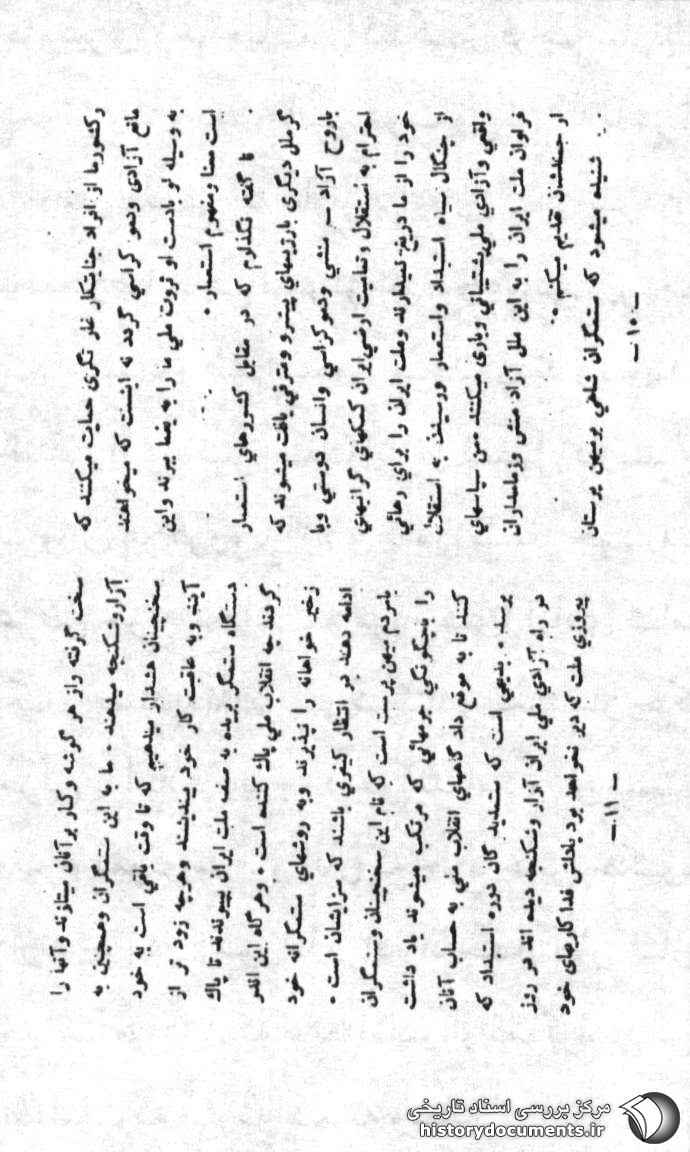 وکشورما از افراد جنایتکار غارتگری حمایت میکنند که
مانع آزادی ودمو کراسی گردد نه اینست که میخواهند
به وسیله او بادست او ثروت ملی ما را به یغما ببرند واین
است معنا ومفهوم استعمار .
نا گفته نگذاریم که در مقابل کشورهای استعمار
گر ملل دیگری بارژیمهای پیشرو ومترقی یافت میشوند که
باروح آزاد منشی ودمو کراسی وانسان دوستی وبا
احترام به استقلال وتمامیت ارضی ایران کمکهای گرانبهای
خود را از ما دریغ نمیدارند وملت ایران را برای رهائی
از چنگال سیاه استبداد واستعمار ورسیدن به استقلال
واقعی وآزادی ملی پشتیبانی ویاری میکنند من سپاسهای
فراوان ملت ایران را به این ملل آزاد منش وزمامداران
ارجمندشان تقدیم میکنم .
شنیده میشود که ستمگران شاهی برمیهن پرستان
ـ ۱۰ ـ
سخت گرفته واز هر گوشه وکنار برآنان میتازند وآنها را
آزار وشکنجه میدهند . ما به این ستمگران وهمچنین به
سخنچینان هشدار میدهیم که تا وقت باقی است به خود
آیند وبه عاقبت کار خود بیندیشند وهرچه زود تر از
دستگاه ستمگر بریده به صف ملت ایران بپیوندند تا پاك
گردند چه انقلاب ملی پاك کننده است . وهر گاه این اندرز
خیر خواهانه را نپذیرند وبه روشهای ستمگرانه خود
ادامه دهند در انتظار کیفری باشند که سزایشان است .
بامردم میهن پرست است که نام این سخنچینان وستمگران
را باچگونگی جرمهائی که مرتکب میشوند یاد داشت
کنند تا به موقع داد گاههای انقلاب ملی به حساب آنان
برسد . بدیهی است که ستمدید گان دوره استبداد که
در راه آزادی ملی ایران آزار وشکنجه دیده اند در روز
پیروزی ملت که دیر نخواهد بود پاداش فداکاریهای خود
ـ ۱۱ ـ
مرکز بررسی اسناد تاریخی
historydocuments.ir